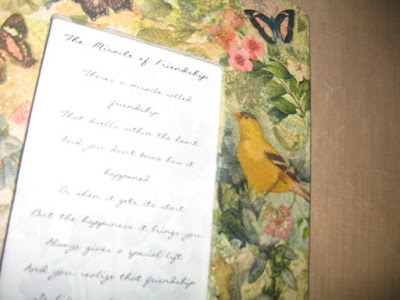 The Miracle of Friendship
There's a miracle called
friendship
That dwells within the heart
And you don't know how it
happened
Or when it gets its start
But the happiness it brings you
Always gives a special lift
And you realize that friendship